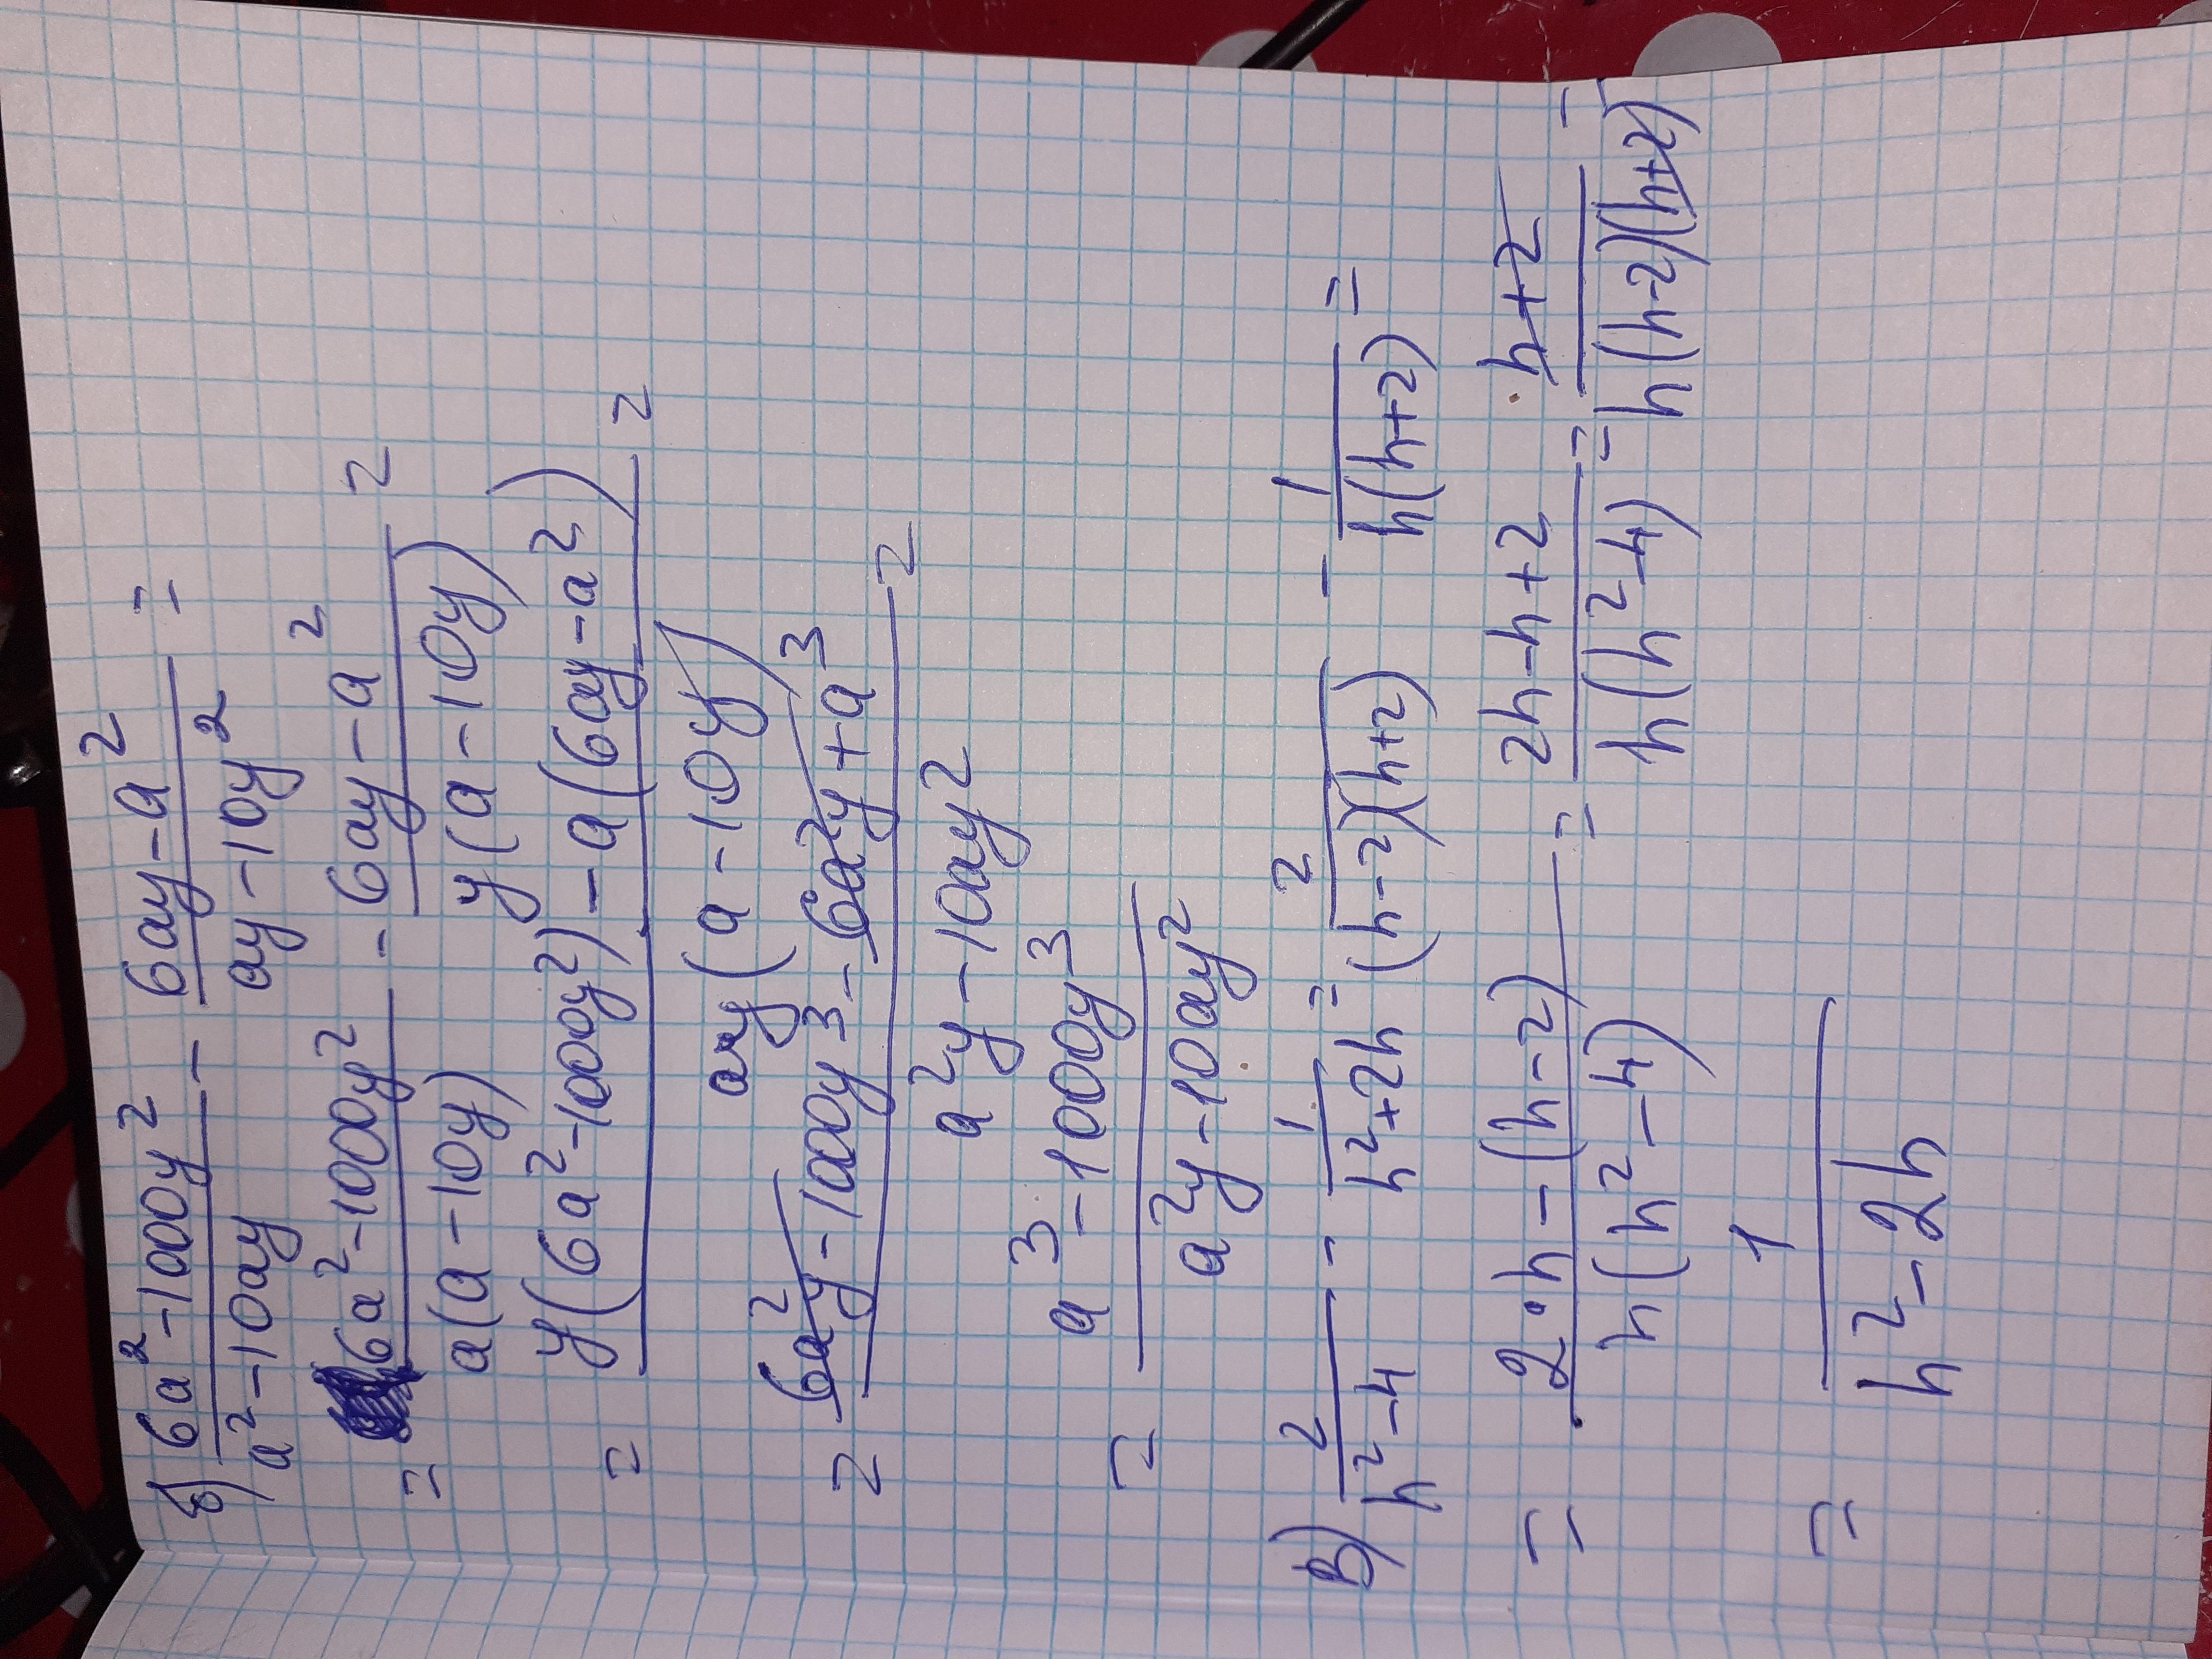 б) (6a² - 1000y²)/(a² - 10ay) - (6ay - a²)/(ay - 10y²) =
= (6a² - 1000y²)/(a(a - 10y)) - (6ay - a²)/(y(a - 10y)) =
= (y(6a² - 1000y²) - a(6ay - a²))/(ay(a - 10y)) =
= (6a²y - 1000y³ - 6a²y + a³)/(a²y - 10ay²) =
= (a³ - 1000y³)/(a²y - 10ay²)
в) 2/(h² - 4) - 1/(h² + 2h) = 2/((h - 2)(h + 2)) - 1/(h(h + 2)) =
= (2·h - (h - 2))/(h(h² - 4)) = (2h - h + 2)/(h(h² - 4)) = (h + 2)/(h(h - 2)(h + 2)) =
= 1/(h² - 2h)